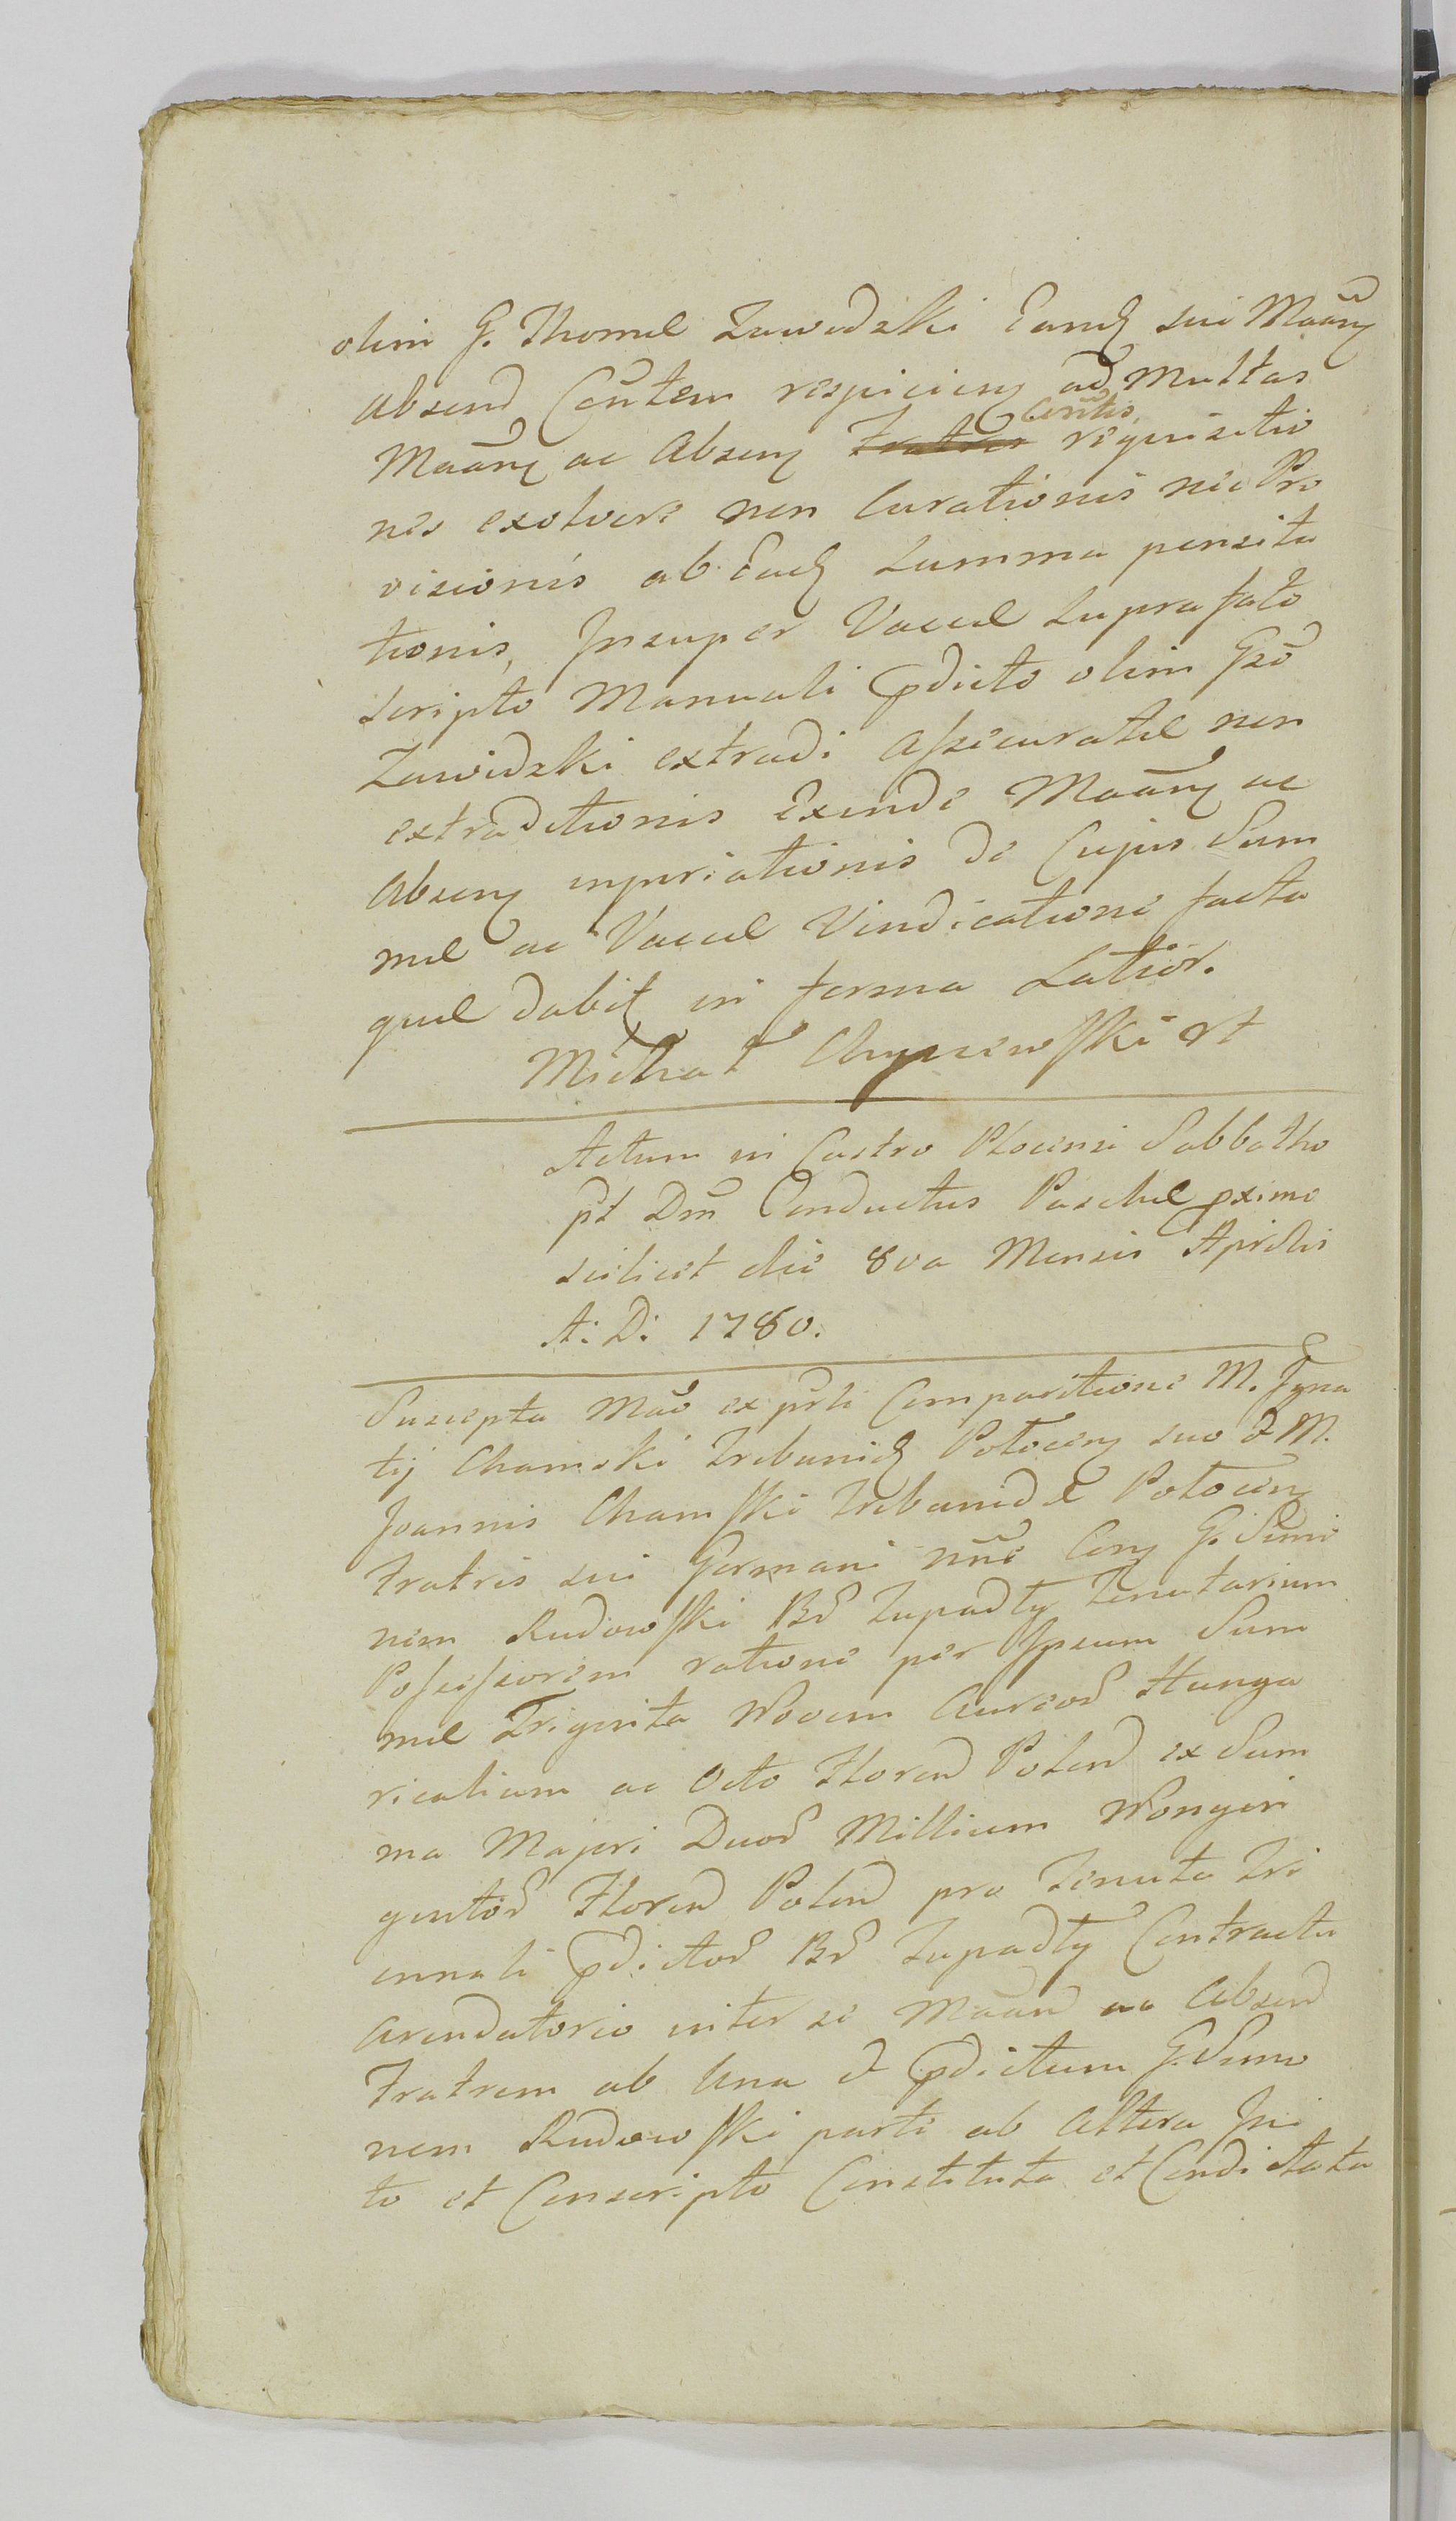 olim G. Thomæ Zawidzki Eandꝫ sui Maãnꝫ
absend Cõntem respicienꝫ ad Multas
Maãnꝫ ac Absenꝫ Fratres Contis requisitio
nes exolvere non Curationis nec Pro
visionis ab Eadꝫ Summa pensita
tionis, Insuper Vaccæ Suprafato
Scripto Manuali pdicto olim Gso
Zawidzki extradi assecuratæ non
extraditionis Exinde Maãnꝫ ac
Absenꝫ injuriationis de Cujus Sum
mæ ac Vaccæ Vindicatione facta
quæ dabit in forma Latior.
Michał
Actum in Castro Plocensi Sabbatho
pt Dm Conductus Paschæ pximo
scilicet die 8va Mensis Aprilis
A: D: 1780.
Suscepta Mãõ ex prti Comparitione M. Igna
tij Chamski Tribunidꝫ Płocenꝫ suo & M.
Joannis Chamski Tribunidæ Płocenꝫ
Fratris sui Germani nne Conꝫ G. Simo
nem Rudowski Br Zupadły Tenutarium
Possessorem ratione per Ipsum Sum
mæ Triginta Novem Aureor Hunga
ricalium ac Octo Floren Polon ex Sum
ma Majori Duor Millium Nongen
gentor Floren Polon pro Tenuta Tri
ennali pdictor Br Zupadły Contractu
Arendatorio inter se Maãn ac Absen
Fratrem ab Una & pdictum G. Simo
nem Rudowski parte ab Altera Ini
to et Conscripto Constituta et Condictata